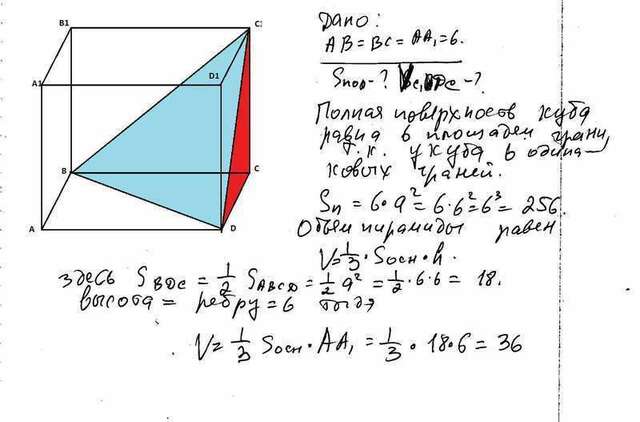 B1
C1
A1
D1
B
C
A
D
Дано:
AB = BC = AA₁ = 6.
Sпол - ?  -?
Полная поверхность куба
равна 6 площадей грани,
т.к. у куба 6 одина-
ковых граней.
Sп = 6·a² = 6·6² = 6³ = 256.
Объем пирамиды равен
V = 1/3 · Sосн · h.
здесь S BDC = 1/2 S ABCD = 1/2 a² = 1/2 · 6 · 6 = 18.
высота = ребру = 6 тогда
V = 1/3 Sосн · AA₁ = 1/3 · 18 · 6 = 36